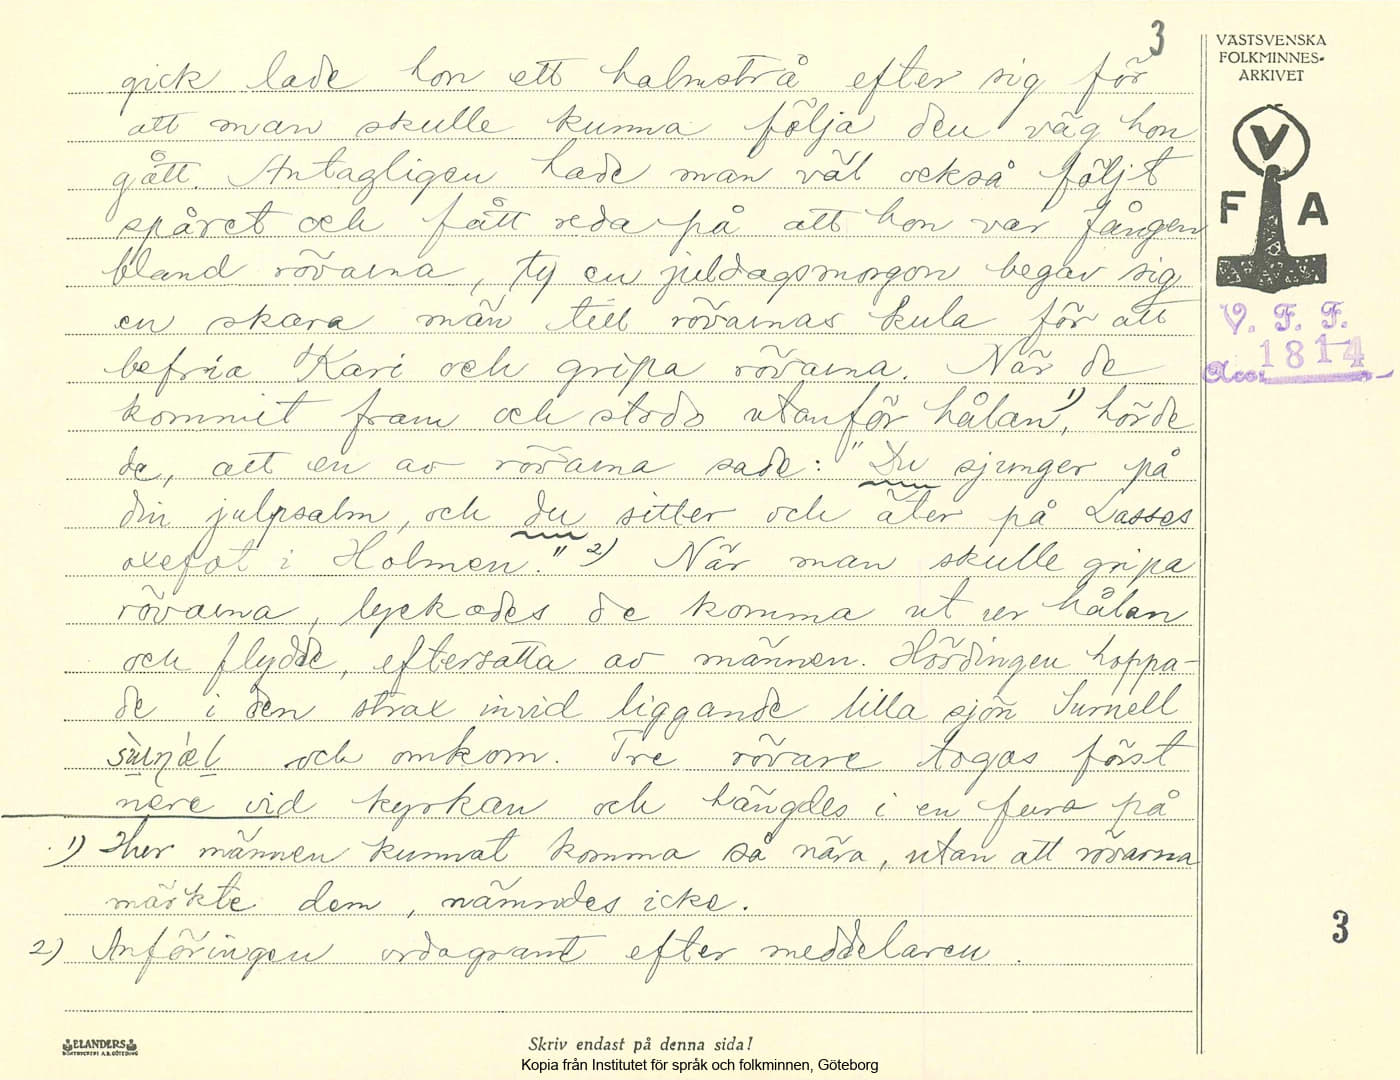 3
VÄSTSVENSKA
FOLKMINNES-
ARKIVET
V
F A
V. F. F.
Acc. 1814
gick lade hon ett halmstrå efter sig för
att man skulle kunna följa den väg hon
gått. Antagligen hade man väl också följt
spåret och fått reda på att hon var fången
bland rövarna, ty en juldagsmorgon begav sig
en skara män till rövarnas kula för att
befria Kari och gripa rövarna. När de
kommit fram och stodo utanför hålan 1), hörde
de, att en av rövarna sade: "Du sjunger på
din julpsalm, och du sitter och äter på Lasses
oxefot i Holmen." 2) När man skulle gripa
rövarna, lyckades de komma ut ur hålan
och flydde, eftersatta av männen. Hövdingen hoppa-
de i den strax invid liggande lilla sjön Surnell
och omkom. Tre rövare togos först
nere vid kyrkan och hängdes i en fura på
1) Hur männen kunnat komma så nära, utan att rövarna
märkte dem, nämndes icke.
2) Anföringen ordagrant efter meddelaren.
3
ELANDERS
BOKTRYCKERI A.B. GÖTEBORG
Skriv endast på denna sida!
Kopia från Institutet för språk och folkminnen, Göteborg